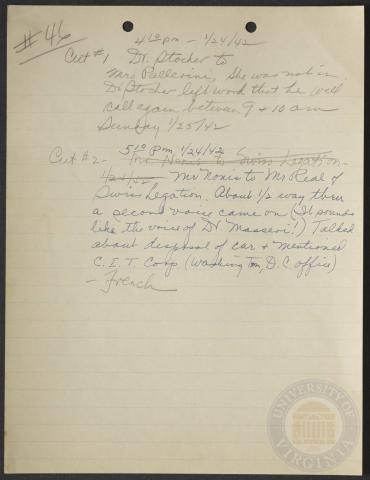 #46
4 10 pm - 1/24/42
Cut #1 Dr. Stocher to
Mrs Pellevini, she was not in.
Dr Stocher left word that he will
call again between 9 + 10 am
Sunday 1/25/42
5 10 pm 1/24/42
Cut #2 - Mr Nonis to Swiss Legation -
1/24/42 Mr Nonis to Mr Real of
Swiss Legation. About 1/2 way thru
a second voice came on (It sounds
like the voice of Dr. Masseri!) Talked
about disposal of car + mentioned
C. E. T. Corp (Washington, D.C. office)
- French
UNIVERSITY OF VIRGINIA